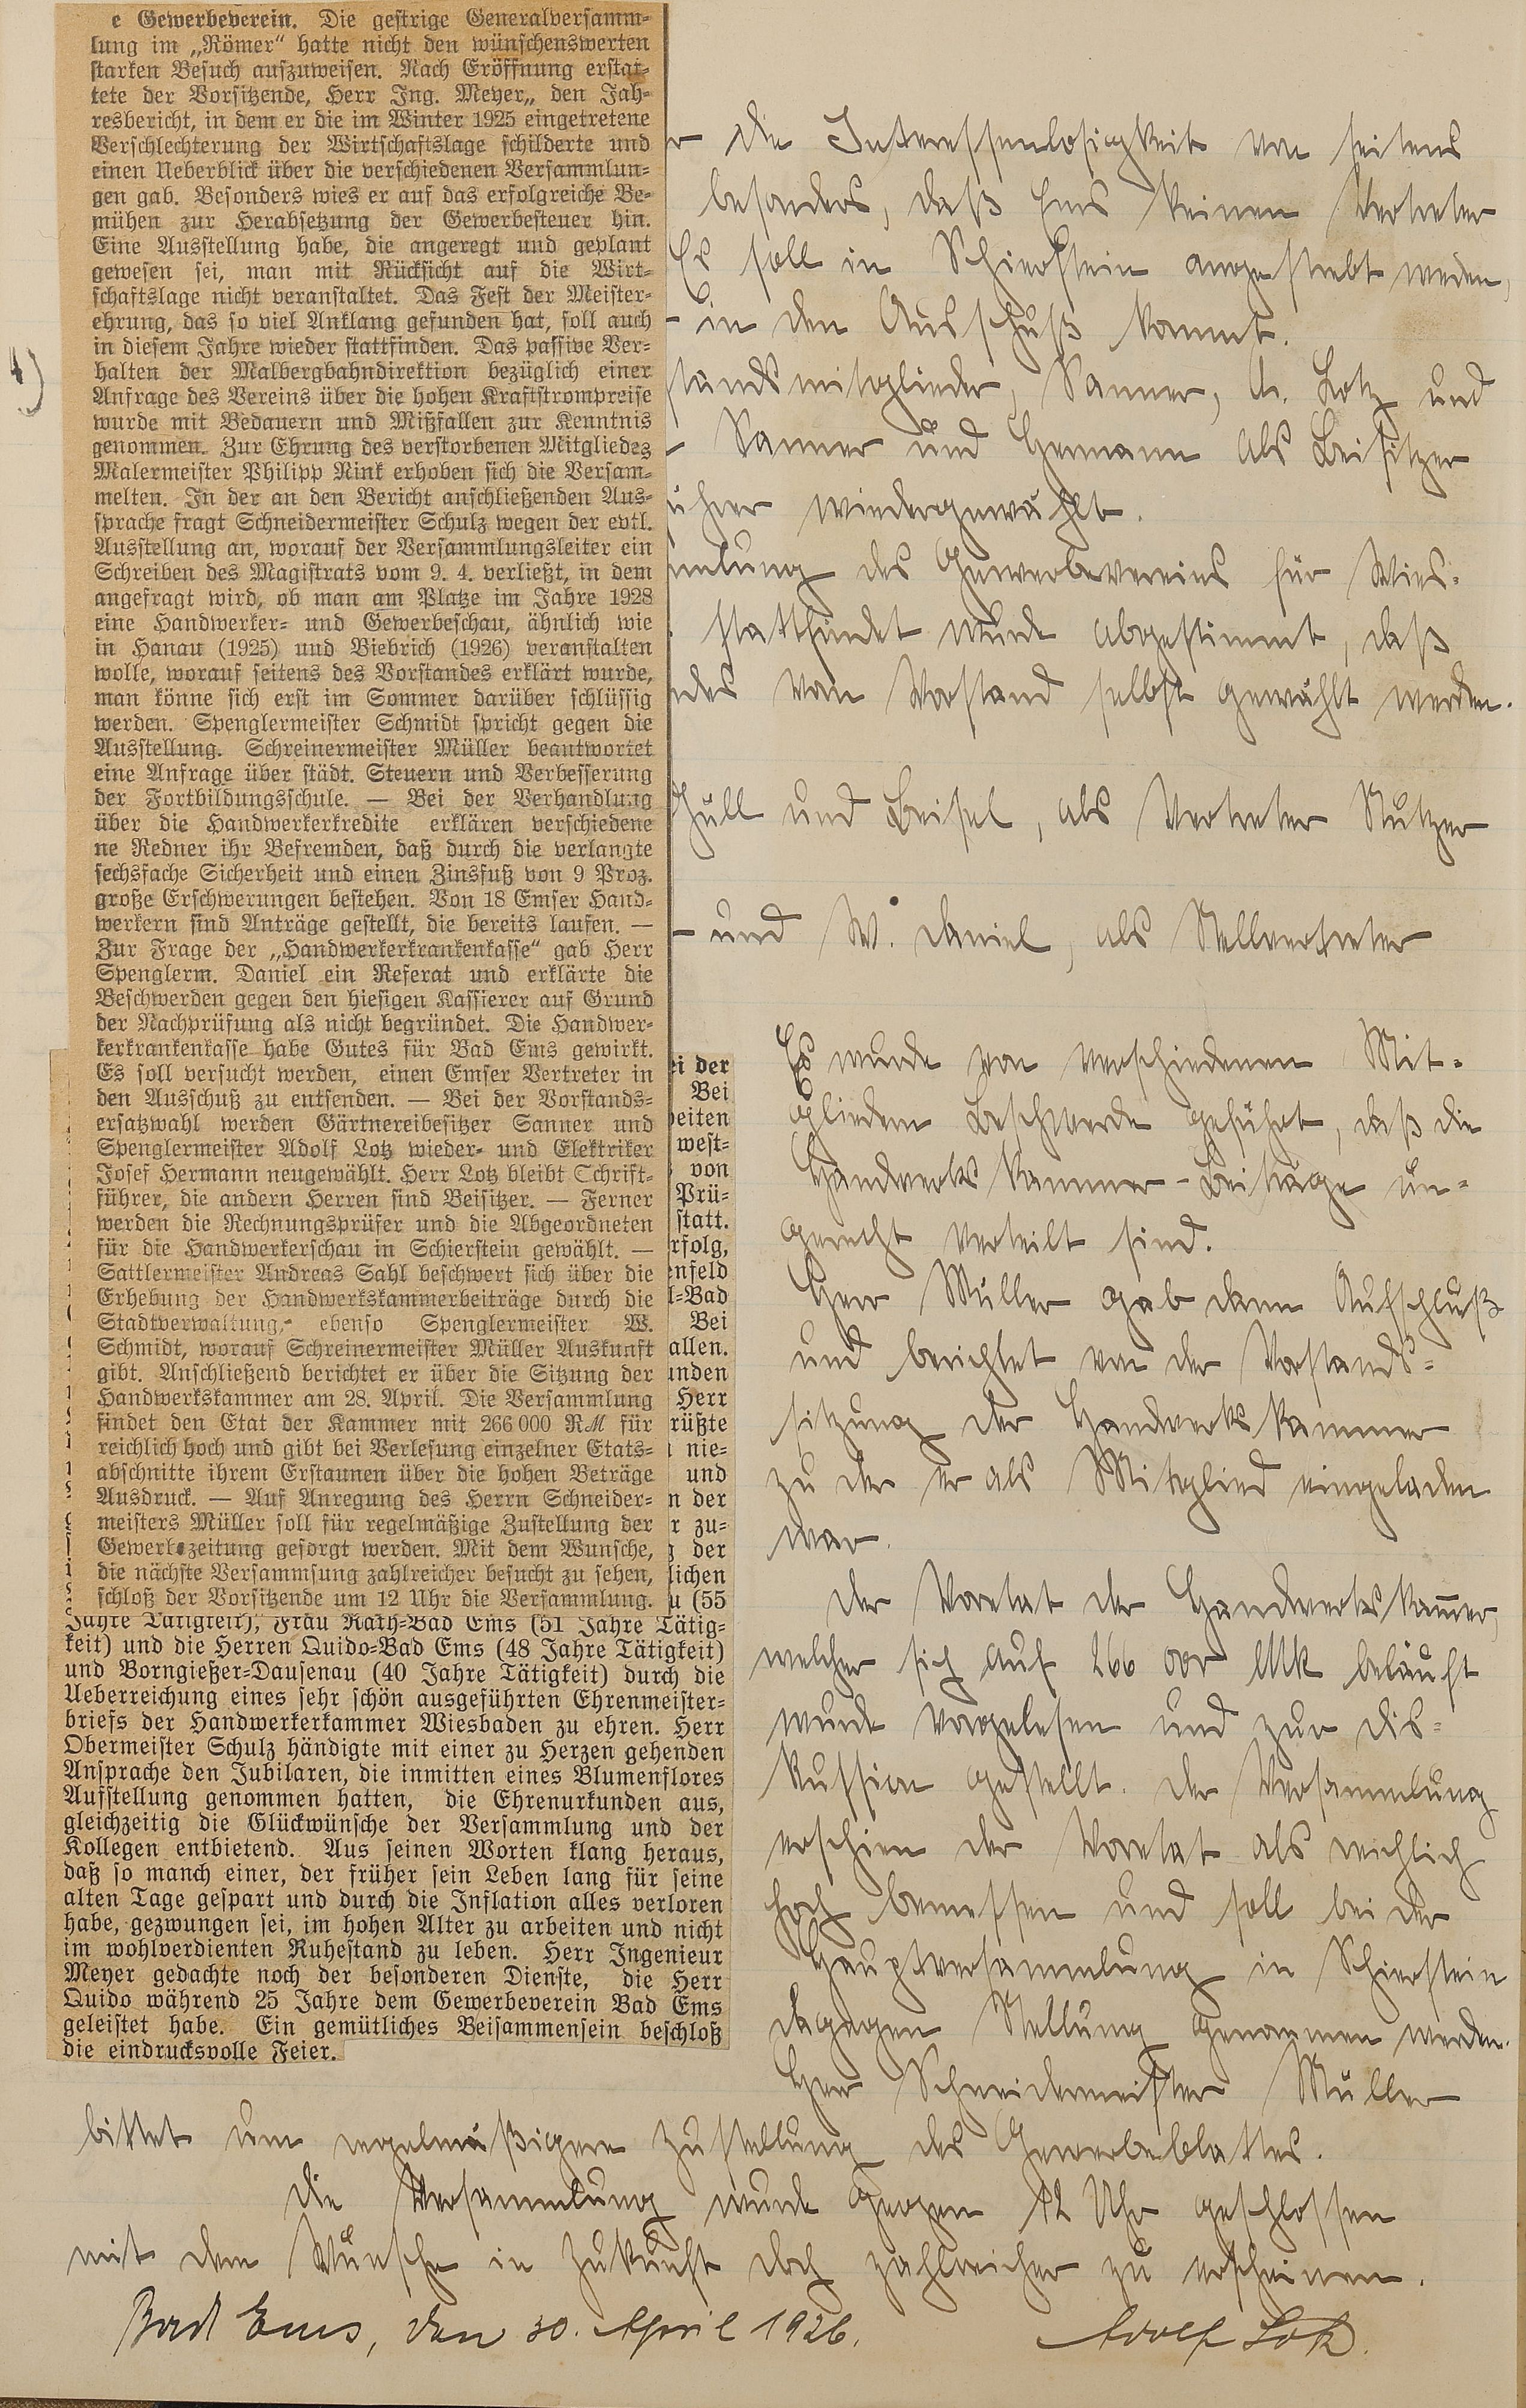 e Gewerbeverein. Die gestrige Generalversamm-
lung im „Römer“ hatte nicht den wünschenswerten
starken Besuch aufzuweisen. Nach Eröffnung erstat-
tete der Vorsitzende, Herr Ing. Meyer„ den Jah-
resbericht, in dem er die im Winter 1925 eingetretene
Verschlechterung der Wirtschaftslage schilderte und
einen Ueberblick über die verschiedenen Versammlun-
gen gab. Besonders wies er auf das erfolgreiche Be-
mühen zur Herabsetzung der Gewerbesteuer hin.
Eine Ausstellung habe, die angeregt und geplant
gewesen sei, man mit Rücksicht auf die Wirt-
schaftslage nicht veranstaltet. Das Fest der Meister-
ehrung, das so viel Anklang gefunden hat, soll auch
in diesem Jahre wieder stattfinden. Das passive Ver-
halten der Malbergbahndirektion bezüglich einer
Anfrage des Vereins über die hohen Kraftstrompreise
wurde mit Bedauern und Mißfallen zur Kenntnis
genommen. Zur Ehrung des verstorbenen Mitgliedes
Malermeister Philipp Nink erhoben sich die Versam-
melten. In der an den Bericht anschließenden Aus-
sprache fragt Schneidermeister Schulz wegen der evtl.
Ausstellung an, worauf der Versammlungsleiter ein
Schreiben des Magistrats vom 9. 4. verließt, in dem
angefragt wird, ob man am Platze im Jahre 1928
eine Handwerker- und Gewerbeschau, ähnlich wie
in Hanau (1925) und Biebrich (1926) veranstalten
wolle, worauf seitens des Vorstandes erklärt wurde,
man könne sich erst im Sommer darüber schlüssig
werden. Spenglermeister Schmidt spricht gegen die
Ausstellung. Schreinermeister Müller beantwortet
eine Anfrage über städt. Steuern und Verbesserung
der Fortbildungsschule. — Bei der Verhandlung
über die Handwerkerkredite erklären verschiedene
ne Redner ihr Befremden, daß durch die verlangte
sechsfache Sicherheit und einen Zinsfuß von 9 Proz.
große Erschwerungen bestehen. Von 18 Emser Hand-
werkern sind Anträge gestellt, die bereits laufen. —
Zur Frage der „Handwerkerkrankenkasse“ gab Herr
Spenglerm. Daniel ein Referat und erklärte die
Beschwerden gegen den hiesigen Kassierer auf Grund
der Nachprüfung als nicht begründet. Die Handwer-
kerkrankenkasse habe Gutes für Bad Ems gewirkt.
Es soll versucht werden, einen Emser Vertreter in
den Ausschuß zu entsenden. — Bei der Vorstands-
ersatzwahl werden Gärtnereibesitzer Sanner und
Spenglermeister Adolf Lotz wieder- und Elektriker
Josef Hermann neugewählt. Herr Lotz bleibt Schrift-
führer, die andern Herren sind Beisitzer. — Ferner
werden die Rechnungsprüfer und die Abgeordneten
für die Handwerkerschau in Schierstein gewählt. —
Sattlermeister Andreas Sahl beschwert sich über die
Erhebung der Handwerkskammerbeiträge durch die
Stadtverwaltung, ebenso Spenglermeister W.
Schmidt, worauf Schreinermeister Müller Auskunft
gibt. Anschließend berichtet er über die Sitzung der
Handwerkskammer am 28. April. Die Versammlung
findet den Etat der Kammer mit 266 000 RM für
reichlich hoch und gibt bei Verlesung einzelner Etats-
abschnitte ihrem Erstaunen über die hohen Beträge
Ausdruck. — Auf Anregung des Herrn Schneider-
meisters Müller soll für regelmäßige Zustellung der
Gewerbezeitung gesorgt werden. Mit dem Wunsche,
die nächste Versammsung zahlreicher besucht zu sehen,
schloß der Vorsitzende um 12 Uhr die Versammlung.
ei der
Bei
beiten
west-
von
Prü-
statt.
rfolg,
enfeld
l-Bad
Bei
allen.
unden
Herr
rüßte
nie-
und
n der
r zu-
g der
lichen
u (55
Jahre Tätigkeit), Frau Rath-Bad Ems (51 Jahre Tätig-
keit) und die Herren Quido-Bad Ems (48 Jahre Tätigkeit)
und Borngießer-Dausenau (40 Jahre Tätigkeit) durch die
Ueberreichung eines sehr schön ausgeführten Ehrenmeister-
briefs der Handwerkerkammer Wiesbaden zu ehren. Herr
Obermeister Schulz händigte mit einer zu Herzen gehenden
Ansprache den Jubilaren, die inmitten eines Blumenflores
Aufstellung genommen hatten, die Ehrenurkunden aus,
gleichzeitig die Glückwünsche der Versammlung und der
Kollegen entbietend. Aus seinen Worten klang heraus,
daß so manch einer, der früher sein Leben lang für seine
alten Tage gespart und durch die Inflation alles verloren
habe, gezwungen sei, im hohen Alter zu arbeiten und nicht
im wohlverdienten Ruhestand zu leben. Herr Ingenieur
Meyer gedachte noch der besonderen Dienste, die Herr
Quido während 25 Jahre dem Gewerbeverein Bad Ems
geleistet habe. Ein gemütliches Beisammensein beschloß
die eindrucksvolle Feier.
r die Interessenlosigkeit von seitens
besonders, daß Ems keinen Vertreter
Es soll in Schierstein angestrebt werden,
in den Ausschuß kommt.
standsmitglieder, Sanner, A. Lotz und
Sanner und Hermann als Beisitzer
ührer wiedergewählt.
mlung des Gewerbevereins für Wies-
stattfindet wurde abgestimmt, daß
ndes vom Vorstand selbst gewählt werden.
und Beisel, als Vertreter Nutzer
und W. Daniel, als Stellvertreter
Es wurde von verschiedenen Mit-
gliedern Beschwerde geführt, daß die
Handwerkskammer-Beiträge un-
gerecht verteilt sind.
Herr Müller gab dann Aufschluß
und berichtet von der Vorstands-
sitzung der Handwerkskammer
zu der er als Mitglied eingeladen
war.
Der Voretat der Handwerkskammer,
welcher sich auf 266 000 Mk beläuft
wurde vorgelesen und zur Dis-
kussion gestellt. Der Versammlung
erschien der Voretat als reichlich
hoch bemessen und soll bei der
Hauptversammlung in Schierstein
dagegen Stellung genommen werden.
Herr Schneidermeister Müller
bittet um regelmäßigere Zustellung des Gewerbeblattes.
Die Versammlung wurde gegen 12 Uhr geschlossen
mit dem Wunsche in Zukunft doch zahlreicher zu erscheinen.
Bad Ems, den 30. April 1926.
Adolf Lotz.